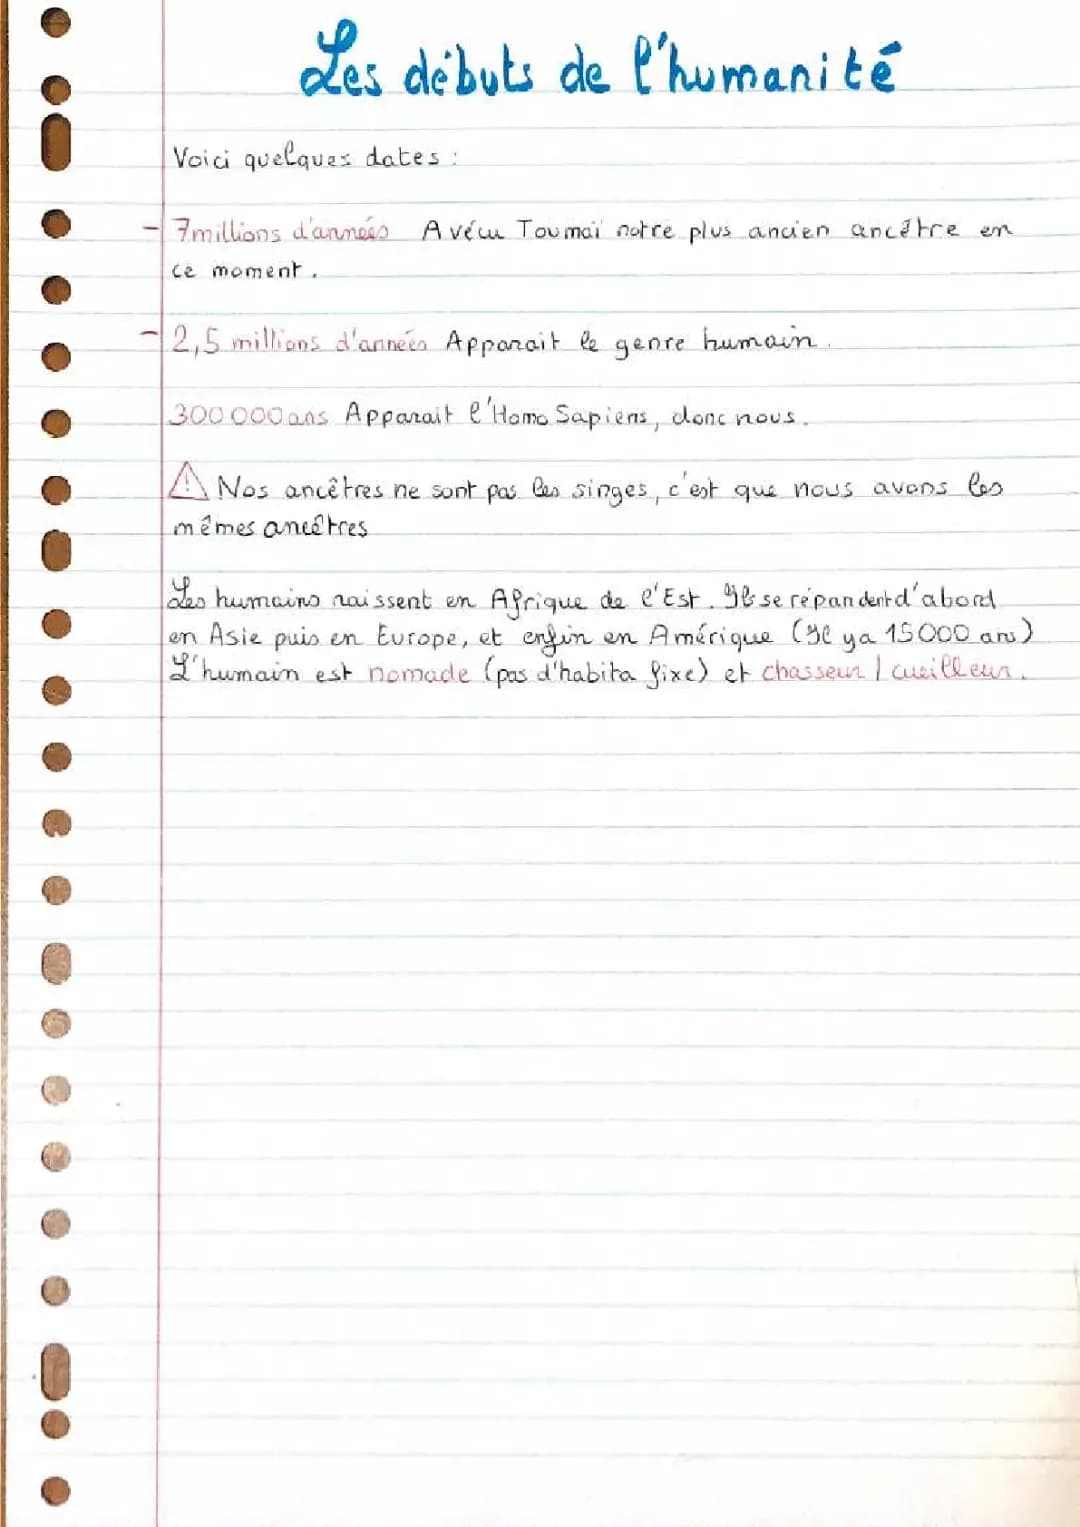 Les débuts de l'humanité
Voici quelques dates :
- 7millions d'années A vécu Toumaï notre plus ancien ancêtre en
ce moment.
- 2,5 millions d'années Apparait le genre humain.
300 000 ans Apparait l'Homo Sapiens, donc nous.
⚠ Nos ancêtres ne sont pas les singes, c'est que nous avons les
mêmes ancêtres
Les humains naissent en Afrique de l'Est. Ils se répandent d'abord
en Asie puis en Europe, et enfin en Amérique (Il y a 15000 ans)
L'humain est nomade (pas d'habita fixe) et chasseur / cueilleur.